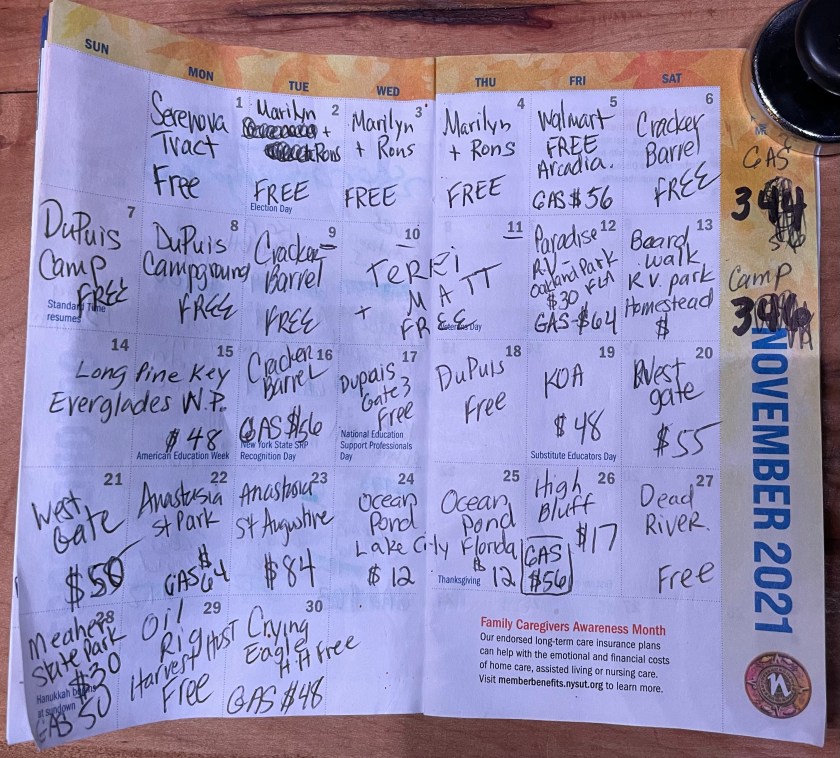 SUN MON TUE WED THU FRI SAT
1
Serenova
Tract
Free
2
Marilyn
+
Rons
FREE
Election Day
3
Marilyn
+ Rons
FREE
4
Marilyn
+ Rons
FREE
5
Walmart
FREE
Arcadia.
GAS $56
6
Cracker
Barrel
FREE
7
DuPuis
Camp
FREE
Standard Time
resumes
8
DuPuis
Campground
FREE
9
Cracker
Barrel
FREE
10
11
TERRI
+ MATT
FREE
Veterans Day
12
Paradise
R.V. -
Oakland Park
$30 FLA
GAS-$64
13
Board
walk
R.V. park
Homestead
$
14
15
Long Pine Key
Everglades N.P.
$48
American Education Week
16
Cracker
Barrel
GAS $56
New York State SRP
Recognition Day
17
Dupais
Gate 3
Free
National Education
Support Professionals
Day
18
DuPuis
Free
19
KOA
$48
Substitute Educators Day
20
West
gate
$55
21
West
Gate
$50
22
Anastasia
St Park
GAS $64
23
Anastasia
St Augustine
$84
24
Ocean
Pond
Lake City Florida
$12
25
Ocean
Pond
$12
Thanksgiving
26
High
Bluff
$17
GAS
$56
27
Dead
River.
Free
28
Meaher
State Park
$30
Hanukkah begins
at sundown
GAS 50
29
Oil
Rig
Harvest Host
Free
30
Crying
Eagle
H.H Free
GAS $48
Family Caregivers Awareness Month
Our endorsed long-term care insurance plans
can help with the emotional and financial costs
of home care, assisted living or nursing care.
Visit memberbenefits.nysut.org to learn more.
GAS
394
Camp
NOVEMBER 2021
n